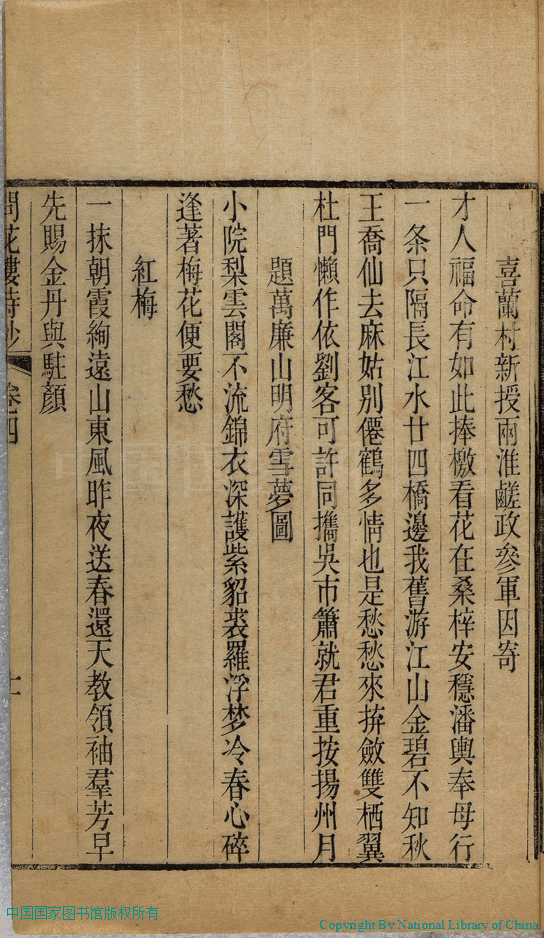 喜蘭村新授兩淮鹺政參軍因寄
才人福命有如此捧檄看花在桑梓安穩潘輿奉母行
一条只隔長江水廿四橋邊我舊游江山金碧不知秋
王喬仙去麻姑別僊鶴多情也是愁愁來拚斂雙栖翼
杜門懶作依劉客可許同攜吳市簫就君重按揚州月
題萬廉山明府雪夢圖
小院梨雲閣不流錦衣深護紫貂裘羅浮梦冷春心碎
逢著梅花便要愁
紅梅
一抹朝霞絢遠山東風昨夜送春還天教領袖羣芳早
先賜金丹與駐顏
問花樓詩鈔 卷四
十一
中国国家图书馆版权所有
Copyright By National Library of China